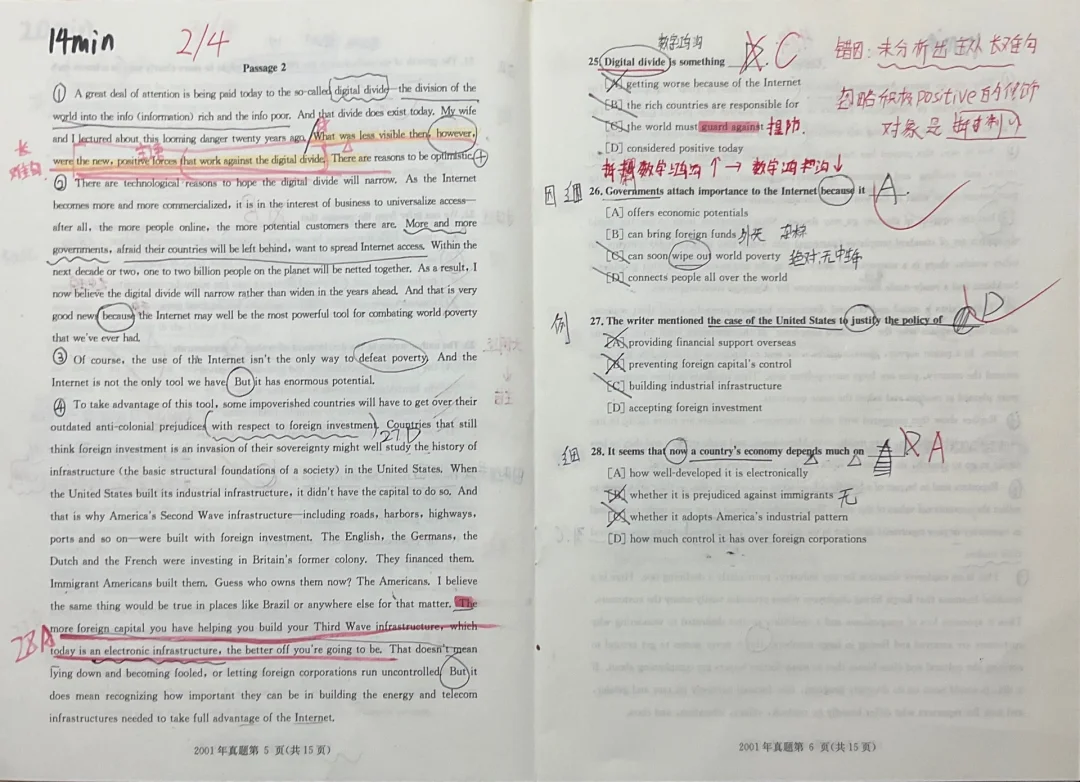 14min
2/4
Passage 2
① A great deal of attention is being paid today to the so-called digital divide—the division of the
world into the info (information) rich and the info poor. And that divide does exist today. My wife
and I lectured about this looming danger twenty years ago. What was less visible then, however,
were the new, positive forces that work against the digital divide. There are reasons to be optimistic. +
长
难句
② There are technological reasons to hope the digital divide will narrow. As the Internet
becomes more and more commercialized, it is in the interest of business to universalize access—
after all, the more people online, the more potential customers there are. More and more
governments, afraid their countries will be left behind, want to spread Internet access. Within the
next decade or two, one to two billion people on the planet will be netted together. As a result, I
now believe the digital divide will narrow rather than widen in the years ahead. And that is very
good news because the Internet may well be the most powerful tool for combating world poverty
that we've ever had.
③ Of course, the use of the Internet isn't the only way to defeat poverty. And the
Internet is not the only tool we have. But it has enormous potential.
④ To take advantage of this tool, some impoverished countries will have to get over their
outdated anti-colonial prejudices with respect to foreign investment. Countries that still
27D
think foreign investment is an invasion of their sovereignty might well study the history of
infrastructure (the basic structural foundations of a society) in the United States. When
the United States built its industrial infrastructure, it didn't have the capital to do so. And
that is why America's Second Wave infrastructure—including roads, harbors, highways,
ports and so on—were built with foreign investment. The English, the Germans, the
Dutch and the French were investing in Britain's former colony. They financed them.
Immigrant Americans built them. Guess who owns them now? The Americans. I believe
the same thing would be true in places like Brazil or anywhere else for that matter. The
more foreign capital you have helping you build your Third Wave infrastructure, which
28A
today is an electronic infrastructure, the better off you're going to be. That doesn't mean
lying down and becoming fooled, or letting foreign corporations run uncontrolled. But it
does mean recognizing how important they can be in building the energy and telecom
infrastructures needed to take full advantage of the Internet.
2001年真题第 5 页(共15页)
数字鸿沟
25. Digital divide is something C
错因：未分析出主从长难句
忽略积极positive的修饰
对象是
[A] getting worse because of the Internet
[B] the rich countries are responsible for
[C] the world must guard against 提防.
[D] considered positive today
数字鸿沟↑→数字鸿沟↓
因 细 26. Governments attach importance to the Internet because it A.
[A] offers economic potentials
[B] can bring foreign funds
[C] can soon wipe out world poverty 绝对,无中生有
[D] connects people all over the world
例 27. The writer mentioned the case of the United States to justify the policy of D
[A] providing financial support overseas
[B] preventing foreign capital's control
[C] building industrial infrastructure
[D] accepting foreign investment
细 28. It seems that now a country's economy depends much on A
[A] how well-developed it is electronically
[B] whether it is prejudiced against immigrants 无
[C] whether it adopts America's industrial pattern
[D] how much control it has over foreign corporations
2001年真题第 6 页(共15页)